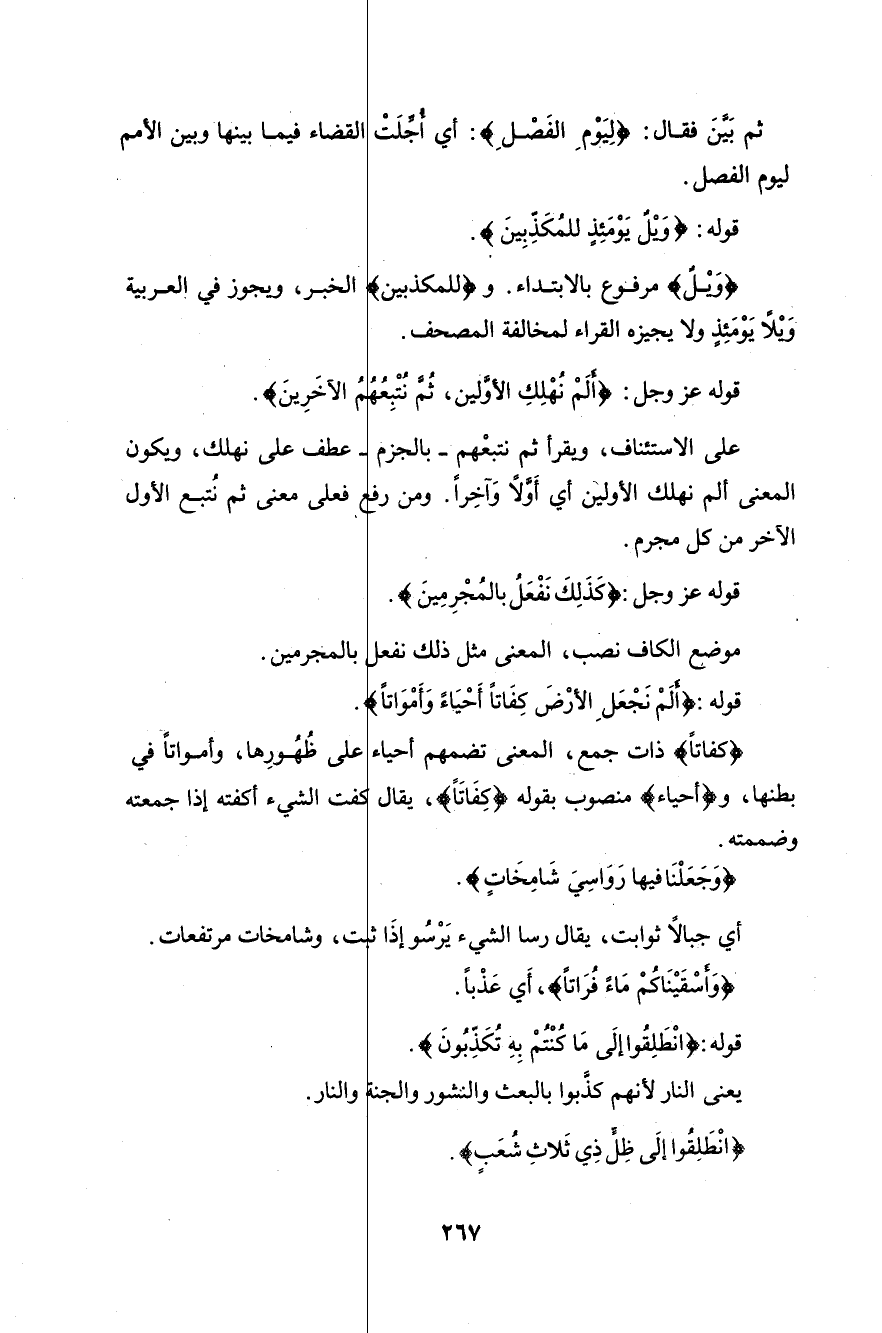 ثم بَيَّنَ فقـال: ﴿لِيَوْمِ الفَصْلِ﴾: أي أُجِّلَتْ القضاء فيمـا بينها وبين الأمم
ليوم الفصل.
قوله: ﴿وَيْلٌ يَوْمَئِذٍ للمُكَذِّبِينَ﴾.
﴿وَيْـلٌ﴾ مرفـوع بالابتـداء. و﴿للمكذبين﴾ الخبـر، ويجوز في العـربية
وَيْلًا يَوْمَئِذٍ ولا يجيزه القراء لمخالفة المصحف.
قوله عز وجل: ﴿أَلَمْ نُهْلِكِ الأوَّلين، ثُمَّ نُتْبِعُهُمُ الآخَرِينَ﴾.
على الاستئناف، ويقرأ ثم نتبعْهم ـ بالجزم ـ عطف على نهلك، ويكون
المعنى ألم نهلك الأولين أي أَوَّلًا وَآخِراً. ومن رفع فعلى معنى ثم نُتبـع الأول
الآخر من كل مجرم.
قوله عز وجل: ﴿كَذَلِكَ نَفْعَلُ بالمُجْرِمِينَ﴾.
موضع الكاف نصب، المعنى مثل ذلك نفعل بالمجرمين.
قوله: ﴿أَلَمْ نَجْعَلِ الأرْضَ كِفَاتاً أَحْيَاءً وَأَمْوَاتاً﴾.
﴿كفاتاً﴾ ذات جمع، المعنى تضمهم أحياء على ظُهُـورِها، وأمـواتاً في
بطنها، و﴿أحياء﴾ منصوب بقوله ﴿كِفَاتَاً﴾، يقال كفت الشيء أكفته إذا جمعته
وضممته.
﴿وَجَعَلْنَا فيها رَوَاسِيَ شَامِخَاتٍ﴾.
أي جبالًا ثوابت، يقال رسا الشيء يَرْسُو إذَا ثبت، وشامخات مرتفعات.
﴿وَأَسْقَيْنَاكُمْ مَاءً فُرَاتاً﴾، أَي عَذْباً.
قوله: ﴿انْطَلِقُوا إلَى مَا كُنْتُمْ بِهِ تُكَذِّبُونَ﴾.
يعنى النار لأنهم كذَّبوا بالبعث والنشور والجنة والنار.
﴿انْطَلِقُوا إلَى ظِلٍّ ذِي ثَلاثِ شُعَبٍ﴾.
٢٦٧